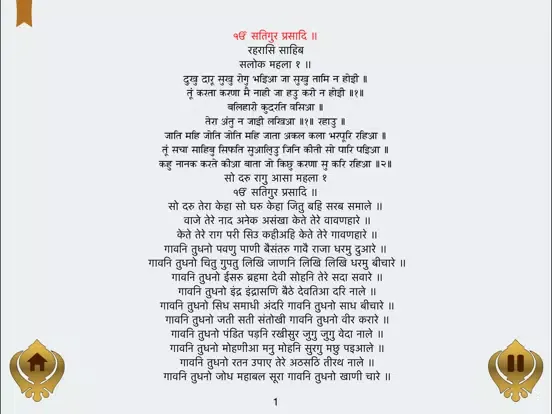 ੴ सतिगुर प्रसादि ॥
रहरासि साहिब
सलोक महला १ ॥
दुखु दारू सुखु रोगु भइिआ जा सुखु तामि न होइी ॥
तूं करता करणा मै नाही जा हउ करी न होइी ॥१॥
बलिहारी कुदरति वसिआ ॥
तेरा अंतु न जाइी लखिआ ॥१॥ रहाउ ॥
जाति महि जोति जोति महि जाता अकल कला भरपूरि रहिआ ॥
तूं सचा साहिबु सिफति सुआलि्उ जिनि कीती सो पारि पइिआ ॥
कहु नानक करते कीआ बाता जो किछु करणा सु करि रहिआ ॥२॥
सो दरु रागु आसा महला १
ੴ सतिगुर प्रसादि ॥
सो दरु तेरा केहा सो घरु केहा जितु बहि सरब समाले ॥
वाजे तेरे नाद अनेक असंखा केते तेरे वावणहारे ॥
केते तेरे राग परी सिउ कहीअहि केते तेरे गावणहारे ॥
गावनि तुधनो पवणु पाणी बैसंतरु गावै राजा धरमु दुआरे ॥
गावनि तुधनो चितु गुपतु लिखि जाणनि लिखि लिखि धरमु बीचारे ॥
गावनि तुधनो ईसरु ब्रहमा देवी सोहनि तेरे सदा सवारे ॥
गावनि तुधनो इंद्र इंद्रासणि बैठे देवतिआ दरि नाले ॥
गावनि तुधनो सिध समाधी अंदरि गावनि तुधनो साध बीचारे ॥
गावनि तुधनो जती सती संतोखी गावनि तुधनो वीर करारे ॥
गावनि तुधनो पंडित पड़नि रखीसुर जुगु जुगु वेदा नाले ॥
गावनि तुधनो मोहणीआ मनु मोहनि सुरगु मछु पइआले ॥
गावनि तुधनो रतन उपाए तेरे अठसठि तीरथ नाले ॥
गावनि तुधनो जोध महाबल सूरा गावनि तुधनो खाणी चारे ॥
1